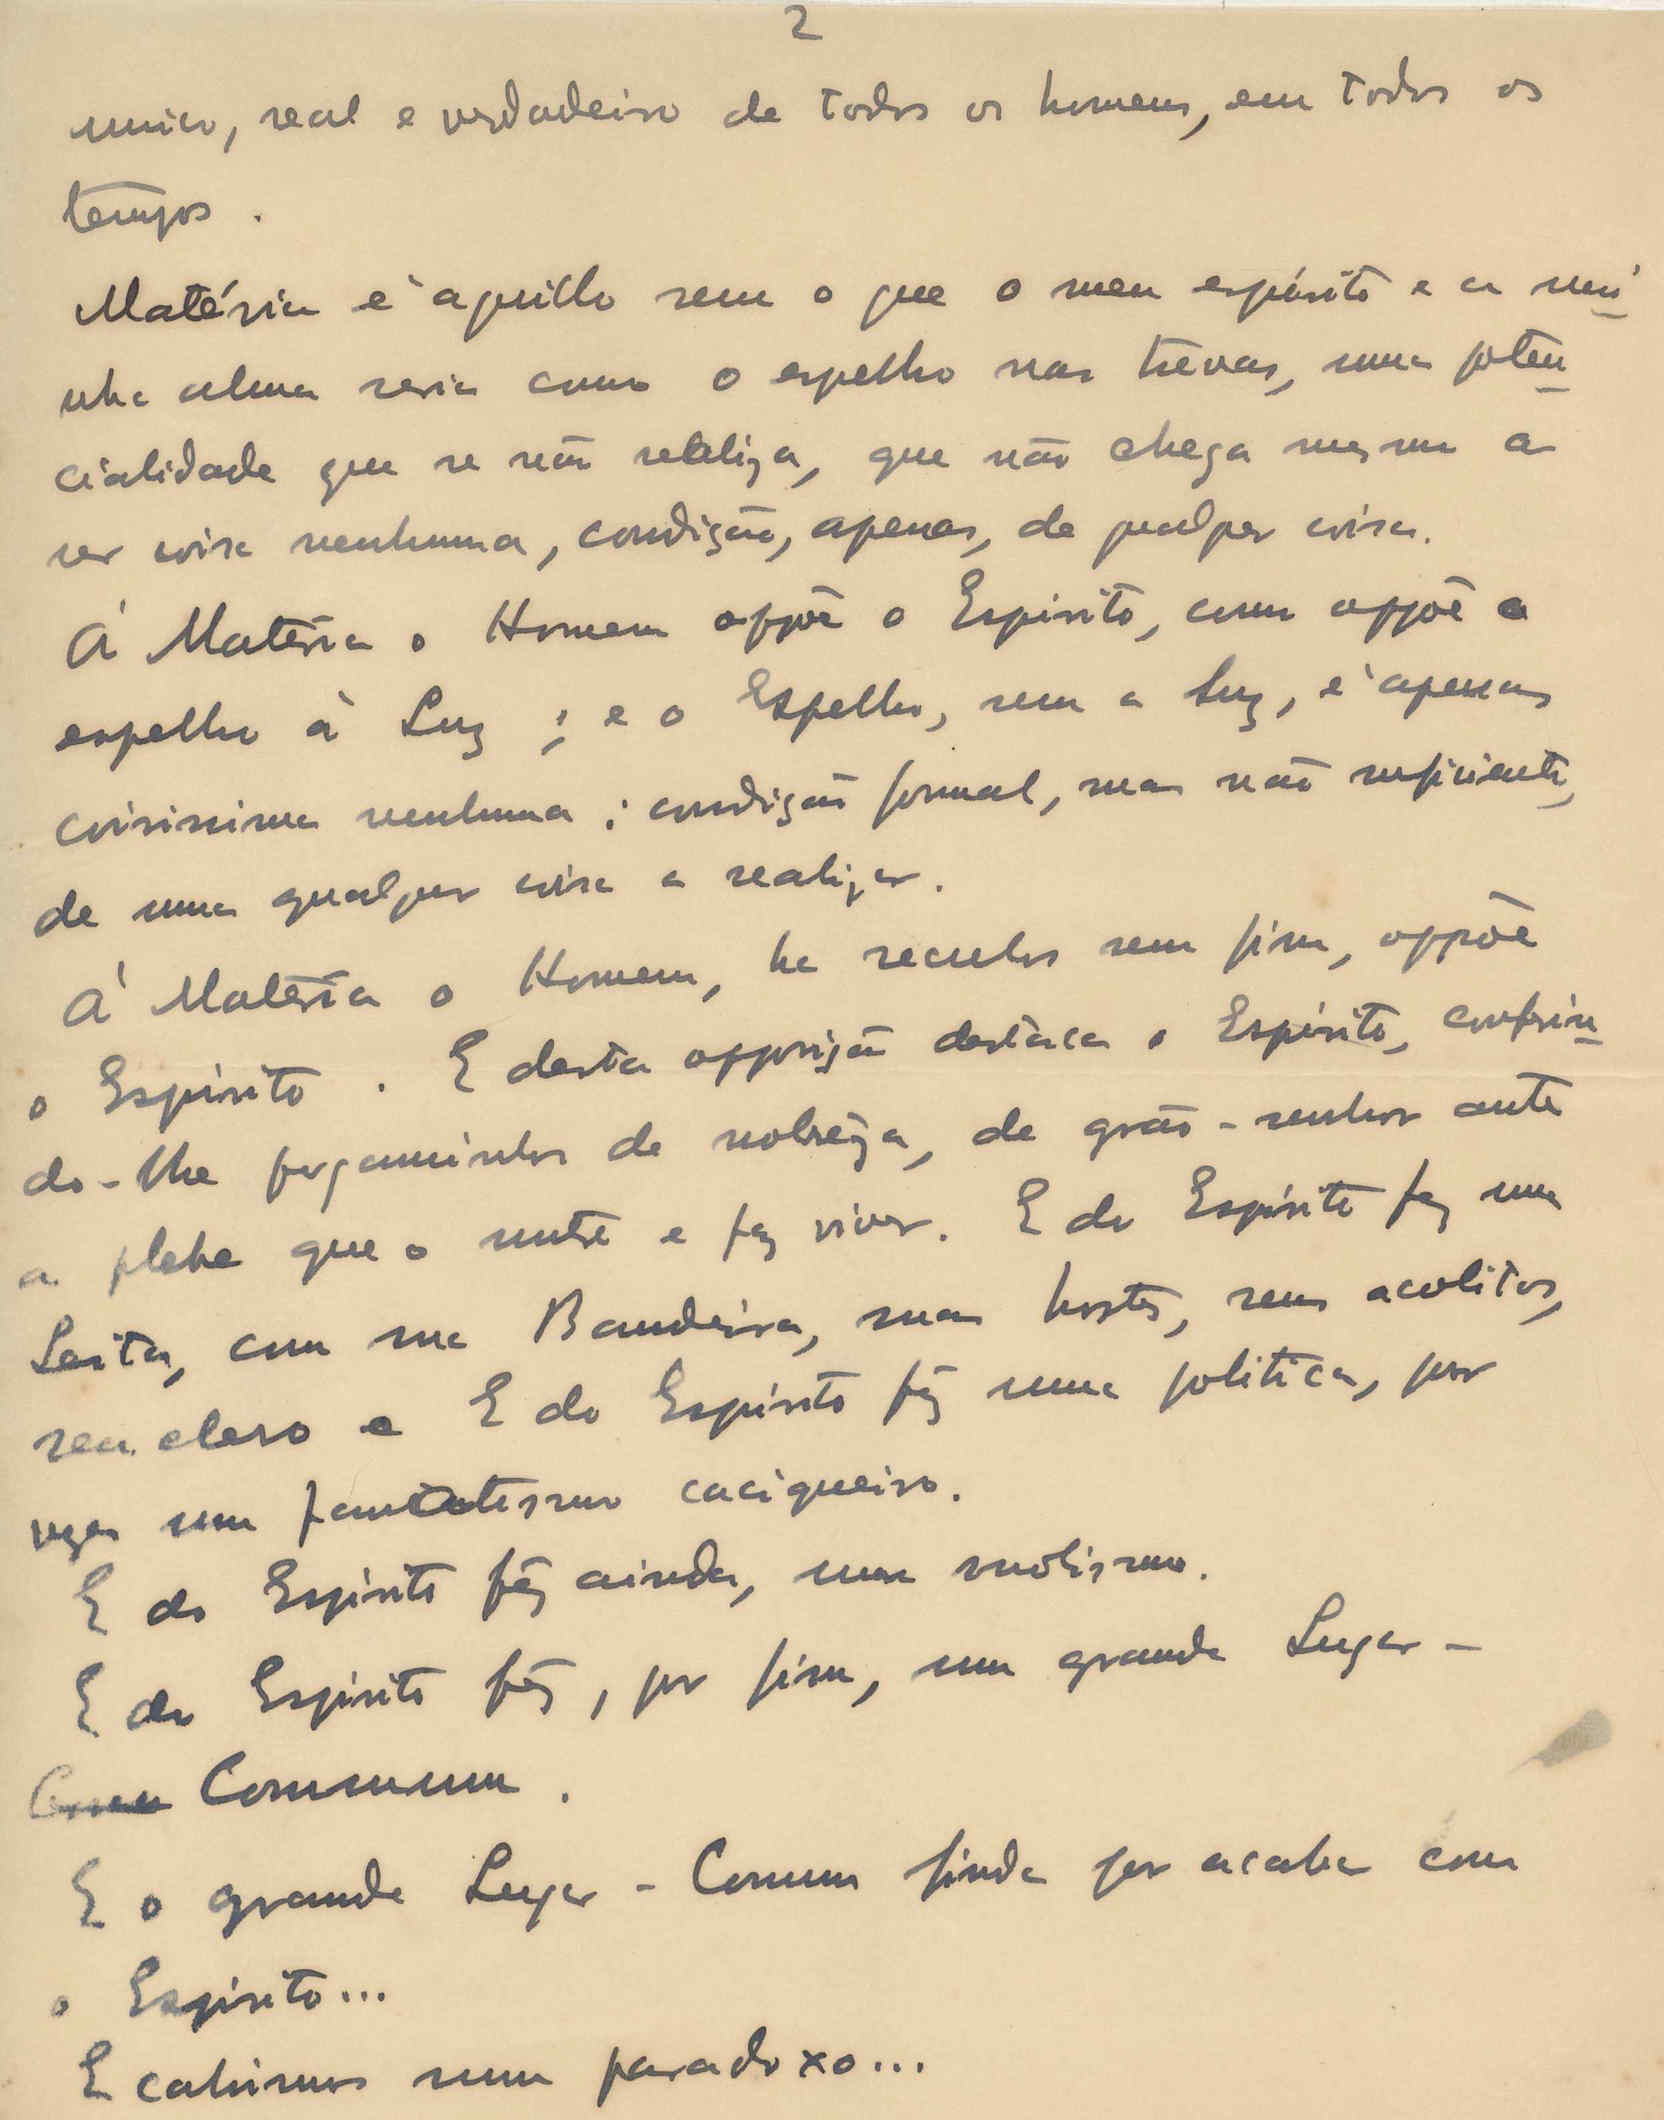 2
unico, real e verdadeiro de todos os homens, em todos os
tempos.
Matéria é aquillo sem o que o meu espírito e a mi-
nha alma seria como o espelho nas trevas, uma poten-
cialidade que se não realiza, que não chega mesmo a
ser coisa nenhuma, condição, apenas, de qualquer coisa.
Á Matéria o Homem oppõe o Espirito, como oppõe o
espelho á Luz; e o Espelho, sem a Luz, é apenas
coisissima nenhuma: condição formal, mas não suficiente,
de uma qualquer coisa a realizar.
Á Matéria o Homem, ha seculos sem fim, oppõe
o Espirito. E desta opposição destaca o Espirito, conferin-
do-lhe pergaminhos de nobreza, de grão-senhor ante
a plebe que o nutre e faz viver. E do Espírito faz uma
Seita, com sua Bandeira, suas hostes, seus acolitos,
seu clero e E do Espírito fáz uma politica, por
vezes um fanatismo caciqueiro.
E do Espirito fáz ainda, um
E do Espirito fáz, por fim, um grande Lugar-
Commum.
E o grande Lugar-Comum finda por acaba com
o Espirito...
E cahimos num paradoxo...